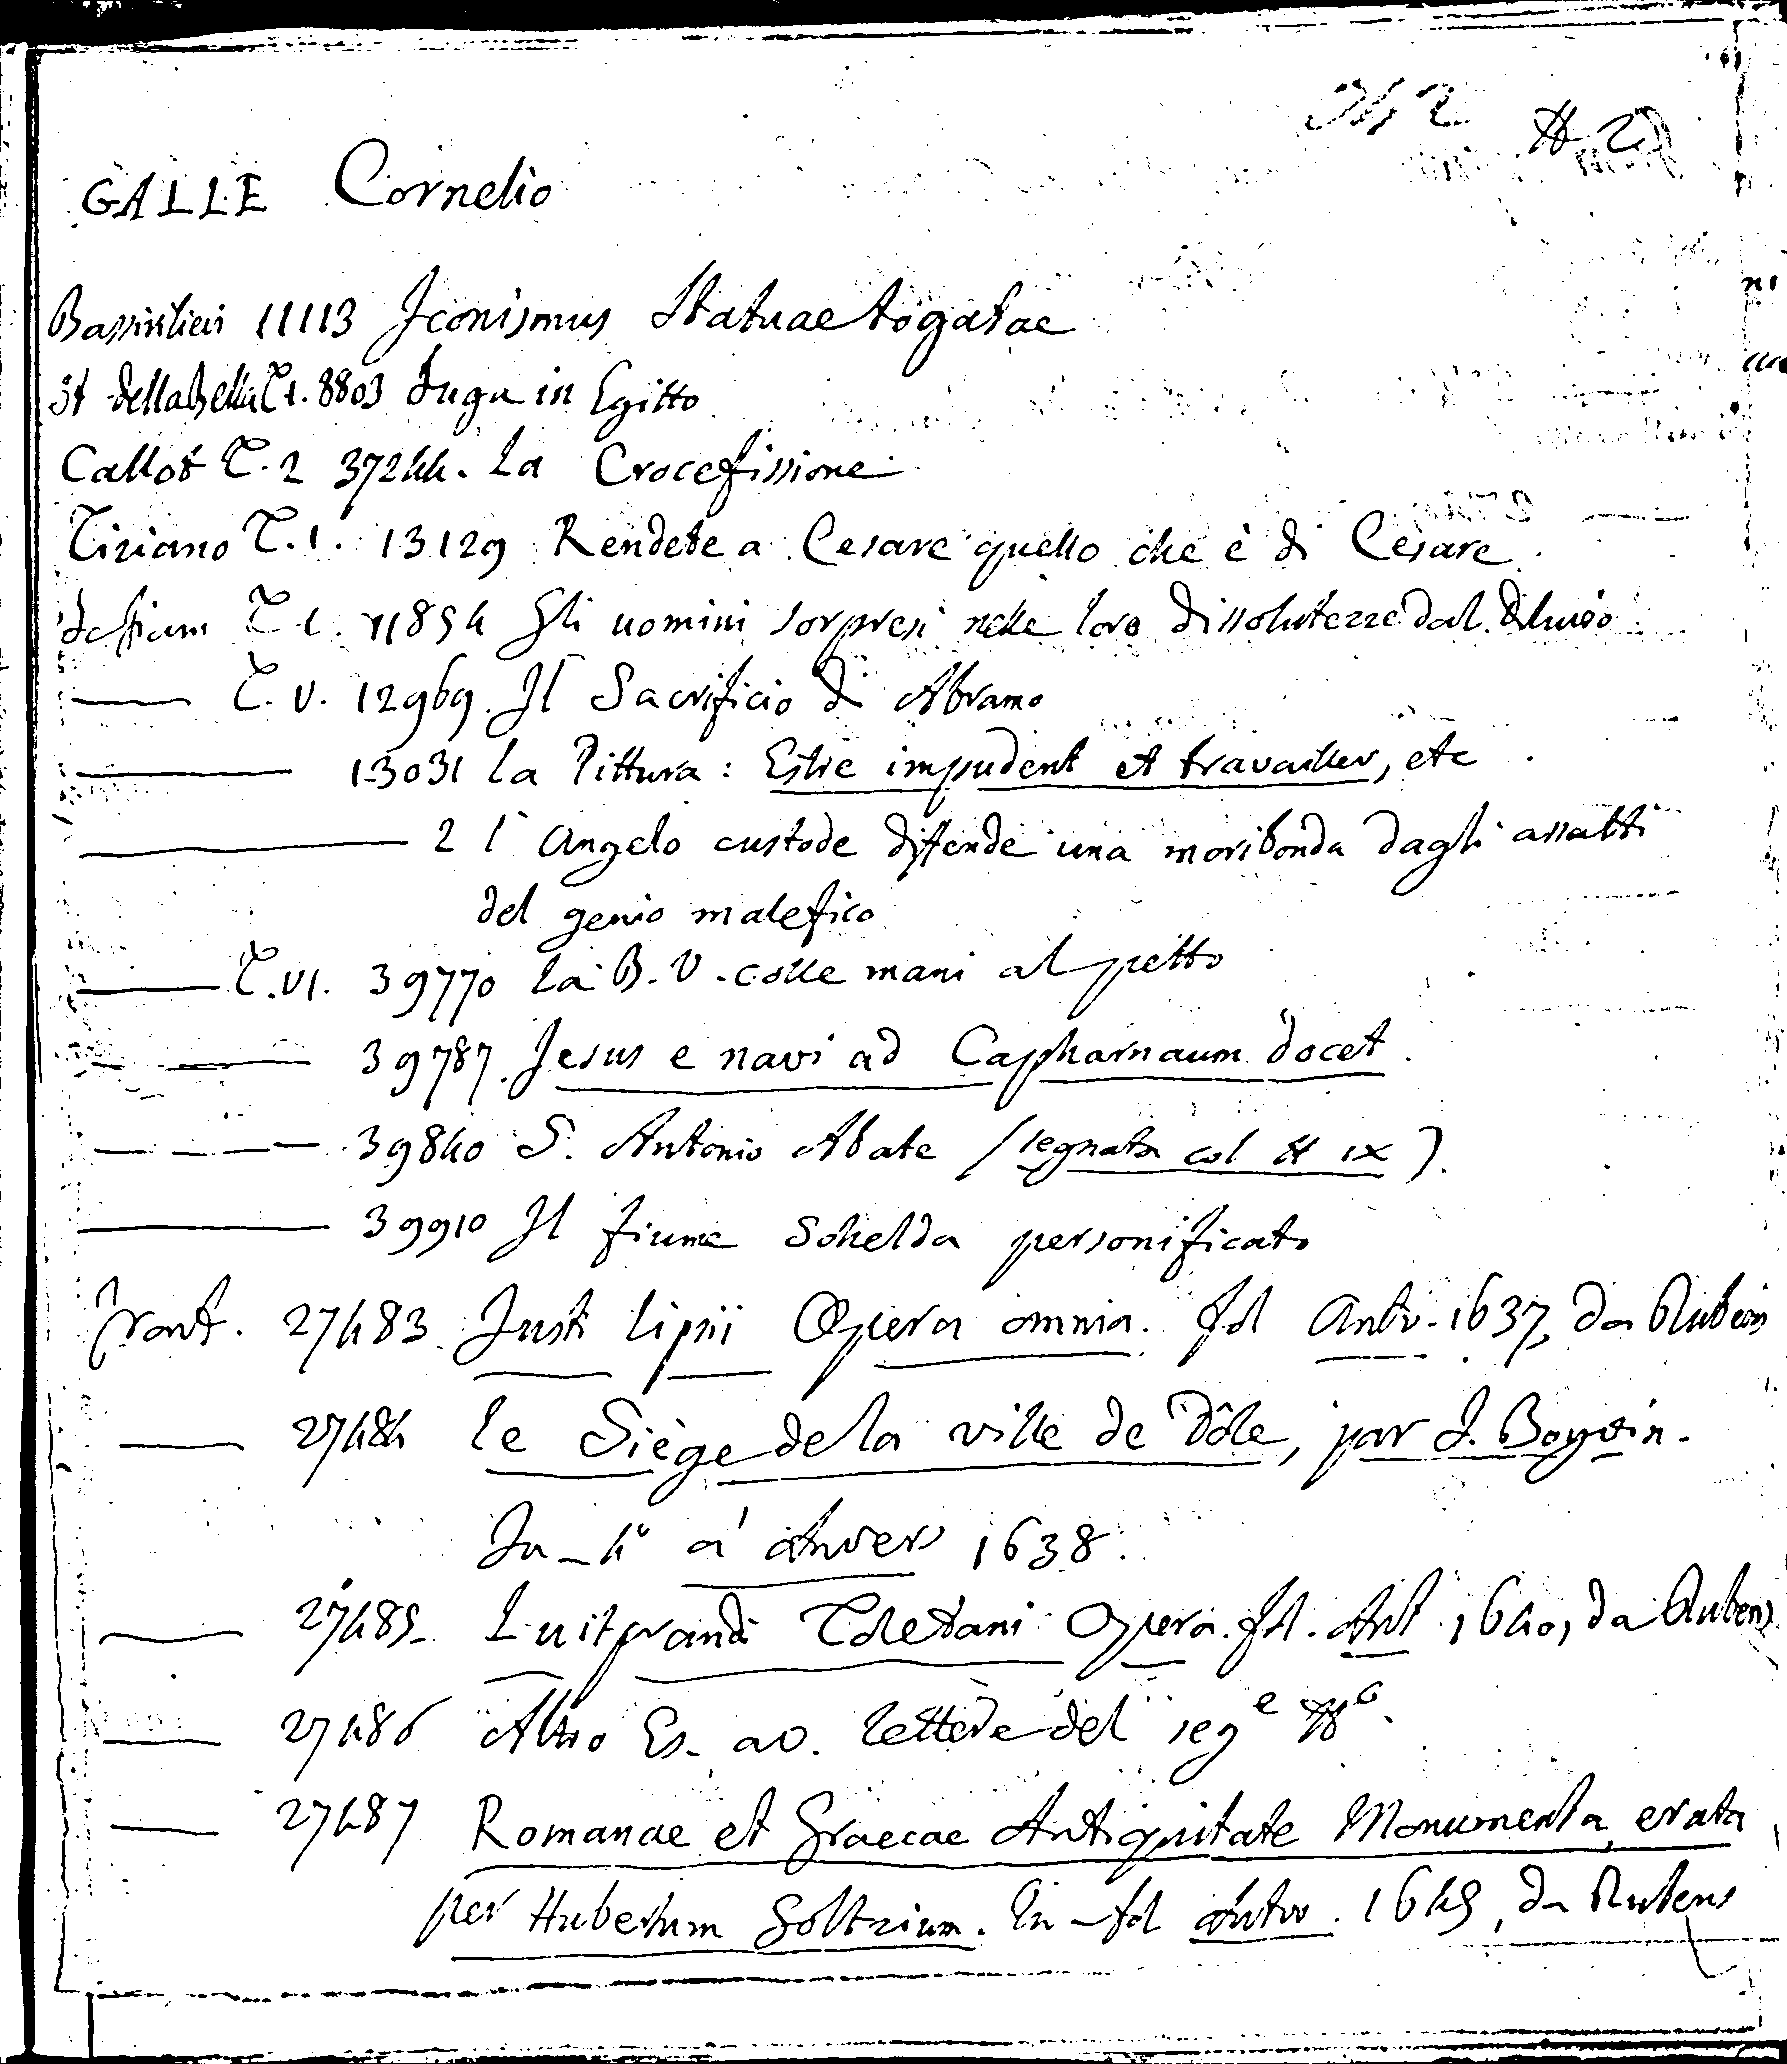 N 2
GALLE Cornelio
11113 Iconismus Statuae togatae
St della Bella T. 1. 8803 Fuga in Egitto
Callot T. 2 37244. La Crocefissione
Tiziano T. 1. 13129 Rendete a Cesare quello che è di Cesare
T. 1. 11854 Gli uomini sorpresi nelle loro dissolutezze dal diluvio
T. V. 12969. Il Sacrificio di Abramo
13031 La Pittura: Estre impudent et travailler, etc
2 l'Angelo custode diffende una moribonda dagli assalti
del genio malefico
T. VI. 39770 La B. V. colle mani al petto
39787. Jesus e navi ad Capharnaum docet
39840 S. Antonio Abate (segnata col N IX).
39910 Il fiume Schelda personificato
Front. 27483. Justi Lipsii Opera omnia. fol Antv. 1637, da Rubens
27484 Le Siège de la ville de Dôle, par J. Boyvin.
In-4° à Anvers 1638.
27485. Luitprandi Toletani Opera. fol. Ant. 1640, da Rubens
27486 Altro Es. av. lettere del seg.e N°.
27487 Romanae et Graecae Antiquitate Monumenta, erata
per Hubertum Goltzium. In-fol Antw. 1645, da Rubens